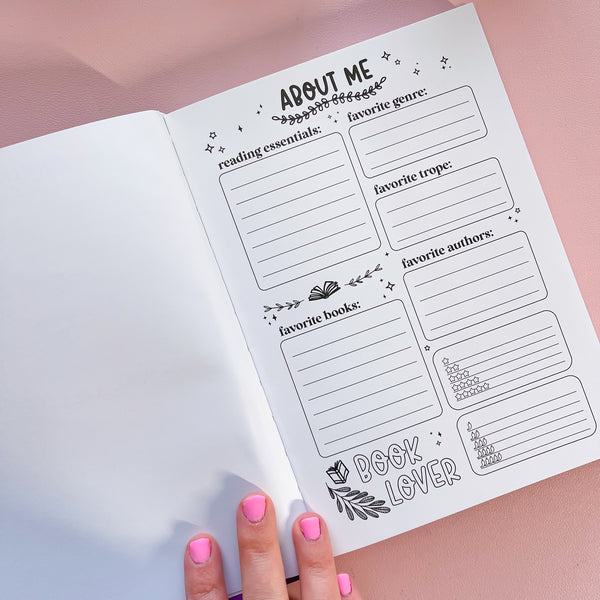 ABOUT ME
reading essentials:
favorite genre:
favorite trope:
favorite books:
favorite authors:
BOOK
LOVER